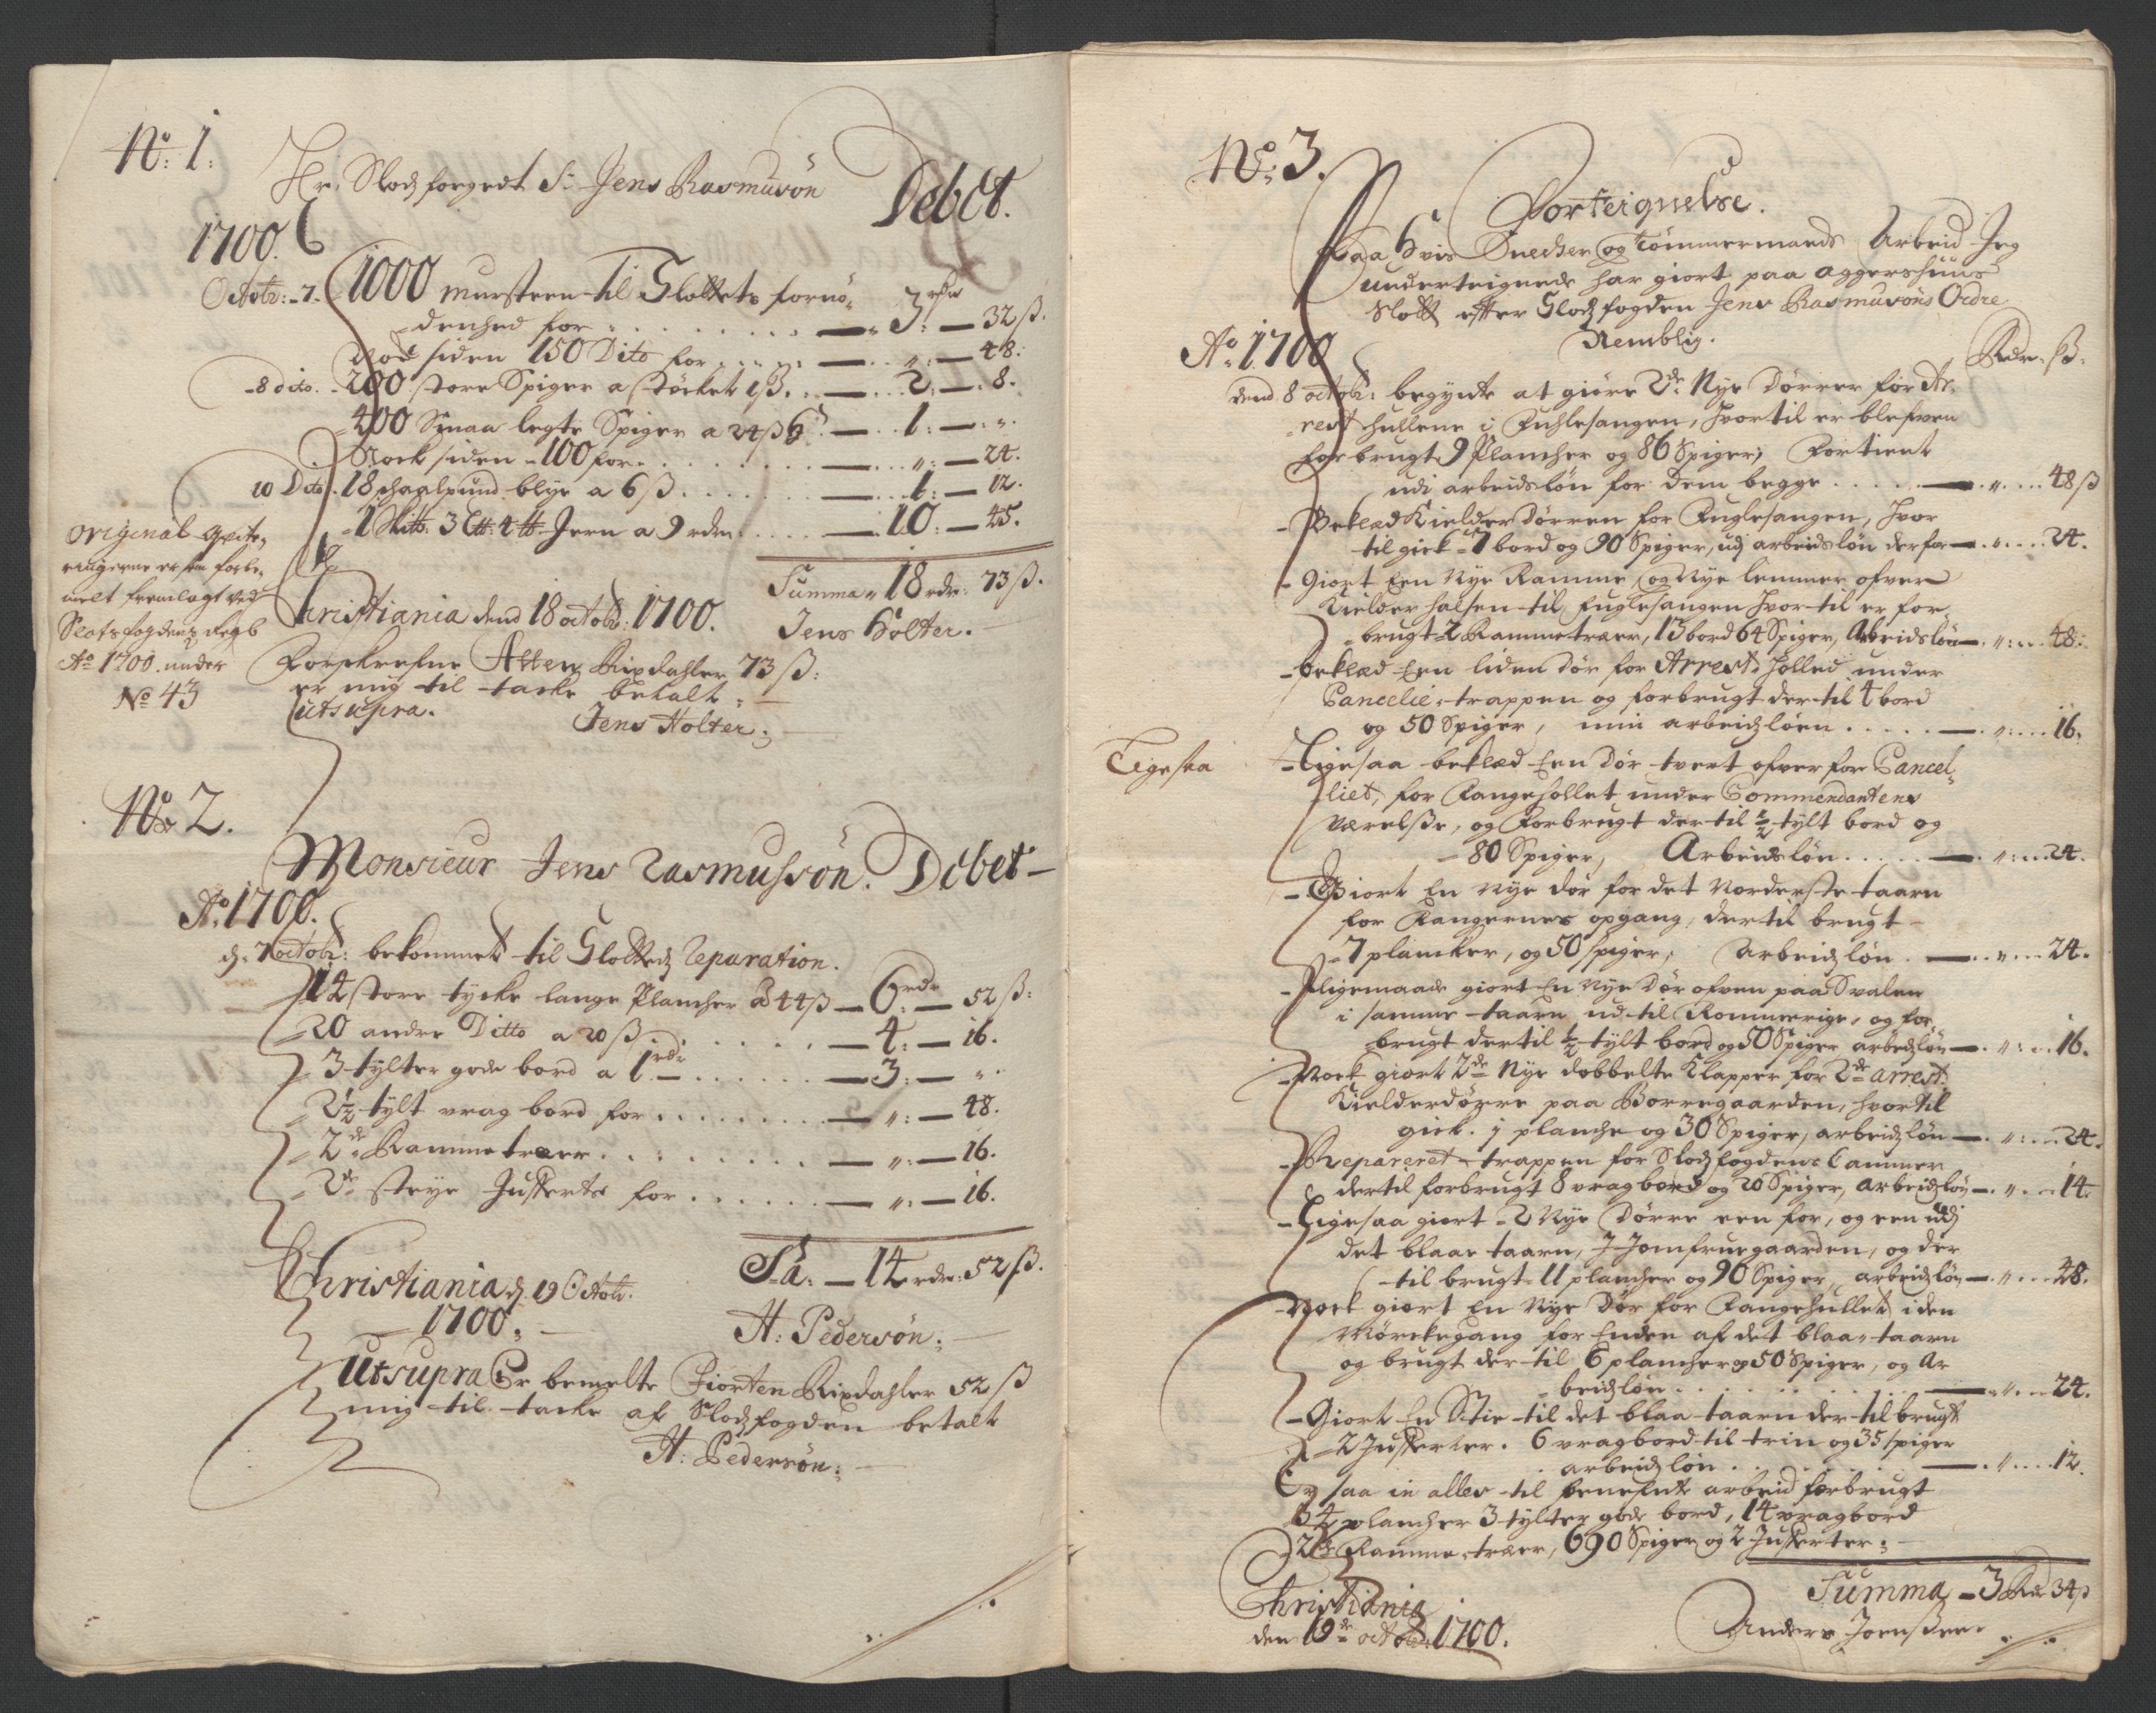 No: 1:
Hr. Slodsfoget Sr Jens Rasmusøn Debet.
1700.
Octobr: 7. 1000 mursteen til Slottets fornø-
denhed for . . . . . 3 rdr 32 ß.
Nock siden 150 Dito for . . . . ": 48:
8 dito. 200 store Spiger a støcket 1 ß. . . 2: 8.
400 Smaa legte Spiger a 24 ß . . 1: ".
Nock siden 100 for . . . . ": 24.
10 Dito. 18 schaalpund blye a 6 ß . . . . 1: 12.
1 Skitt: 3 L tt: 4 tt Jern a 9 rdr . . . 10: 45.
Summa 18 rdr: 73 ß.
Christiania dend 18 octobr: 1700.
Jens Holter.
Forschrefne Atten Rixdahler 73 ß:
er mig til tacke betalt
ut supra.
Jens Holter:
Original Qvite-
ringerne er som forbe-
melt fremlagt ved
Slotsfogdens Regb
Ao 1700. under
No 43
No: 2.
Monsieur Jens Rasmussøn. Debet
Ao 1700.
d: 7 octobr: bekommet til Slotteds Reparation.
14 store tycke lange Plancher a 44 ß 6 rdr 52 ß:
20 andre Ditto a 20 ß . . . . 4: 16.
3 tylter gode bord a 1 rdr . . . . 3: "
2½ tylt vrag bord for . . . . ": 48.
2de Rammetræer . . . . ": 16.
2de støye Jufferts for . . . . ": 16.
Sa: 14 rdr: 52 ß.
Christiania d 19 Octobr.
1700.
H: Pedersøn:
Ut supra Er bemelte Fiorten Rixdahler 52 ß
mig til tacke af Slodsfogden betalt
H: Pedersøn:
No: 3.
Forteignelse.
Paa hvis Snecher og tømmermands Arbeid Jeg
underteignede har giort paa Aggershuus
Slott efter Slodsfogden Jens Rasmusøns Ordre
Nemblig.
Ao 1700
Rdr. ß.
dend 8 octobr: begynte at giøre 2de Nye Dørrer for Ar-
rest hullene i Fuhlesangen, hvortil er blefven
forbrugt 9 Plancher og 86 Spiger; Fortient
udi arbeidsløn for dem begge . . . . ". 48 ß
Beklæd Kielder Dørren for Fuglesangen, hvor
til gick 7 bord og 90 Spiger, udj arbeidsløn derfor . ". 24.
Giort Een Nye Ramme og Nye lemmer ofver
Kielder halsen til Fuglesangen hvortil er for-
brugt 2 Rammetræer, 13 bord 64 Spiger, Arbeidsløn . ": 48:
beklæd Een liden dør for Arrest holled under
Cancelie-trappen og forbrugt dertil 4 bord
og 50 Spiger, min arbeidsløen . . . . ": 16.
Ligesaa
Ligesaa beklæd Een dør tvert ofver for Cancel-
liet, for Fangehollet under Commendantens
Værelsse, og Forbrugt dertil ½ tylt bord og
80 Spiger, Arbeidsløn . . . . ": 24.
Giort En Nye dør for det Norderste taarn
for Fangernes opgang, dertil brugt
7 plancker, og 50 spiger, Arbeidsløn . ". 24.
Lligemaade giort En Nye Dør ofven paa Svalen
i samme taarn ud til Rommerige, og for-
brugt dertil ½ tylt bord og 50 Spiger arbeidsløn . ": 16.
Nock giort 2de Nye dobbelte Klapper for 2de arrest
Kielderdørre paa Borregaarden, hvortil
gick. j planche og 30 Spiger, arbeidsløn . ": 24.
Repareret trappen for Slodsfogdens Cammer
dertil forbrugt 8 vragbord og 20 Spiger, arbeidsløn . ". 14.
Ligesaa giort 2 Nye Dørre een for, og een udj
det blaae taarn, J Jomfruegaarden, og der
til brugt 11 plancher og 90 Spiger, arbeidsløn . ". 48.
Nock giort En Nye Dør for Fangehullet i den
Mørckegang for Enden af det blaa taarn
og brugt der til 6 plancher og 50 Spiger, og Ar
beidsløn . . . . ". 24.
Giort En Stie til det blaa taarn der til brugt
2 Jufferter. 6 vragbord til trin og 35 spiger
arbeidsløn . . . . ". 12.
Er saa in alles til benefnte arbeid forbrugt
34 plancher 3 tylter gode bord, 14 vragbord
2de Ramme-træer, 690 Spiger og 2 Jufferter:
Summa 3 Rdr 34 ß
Christiania
den 19de octobr: 1700.
Anders Joenssen.